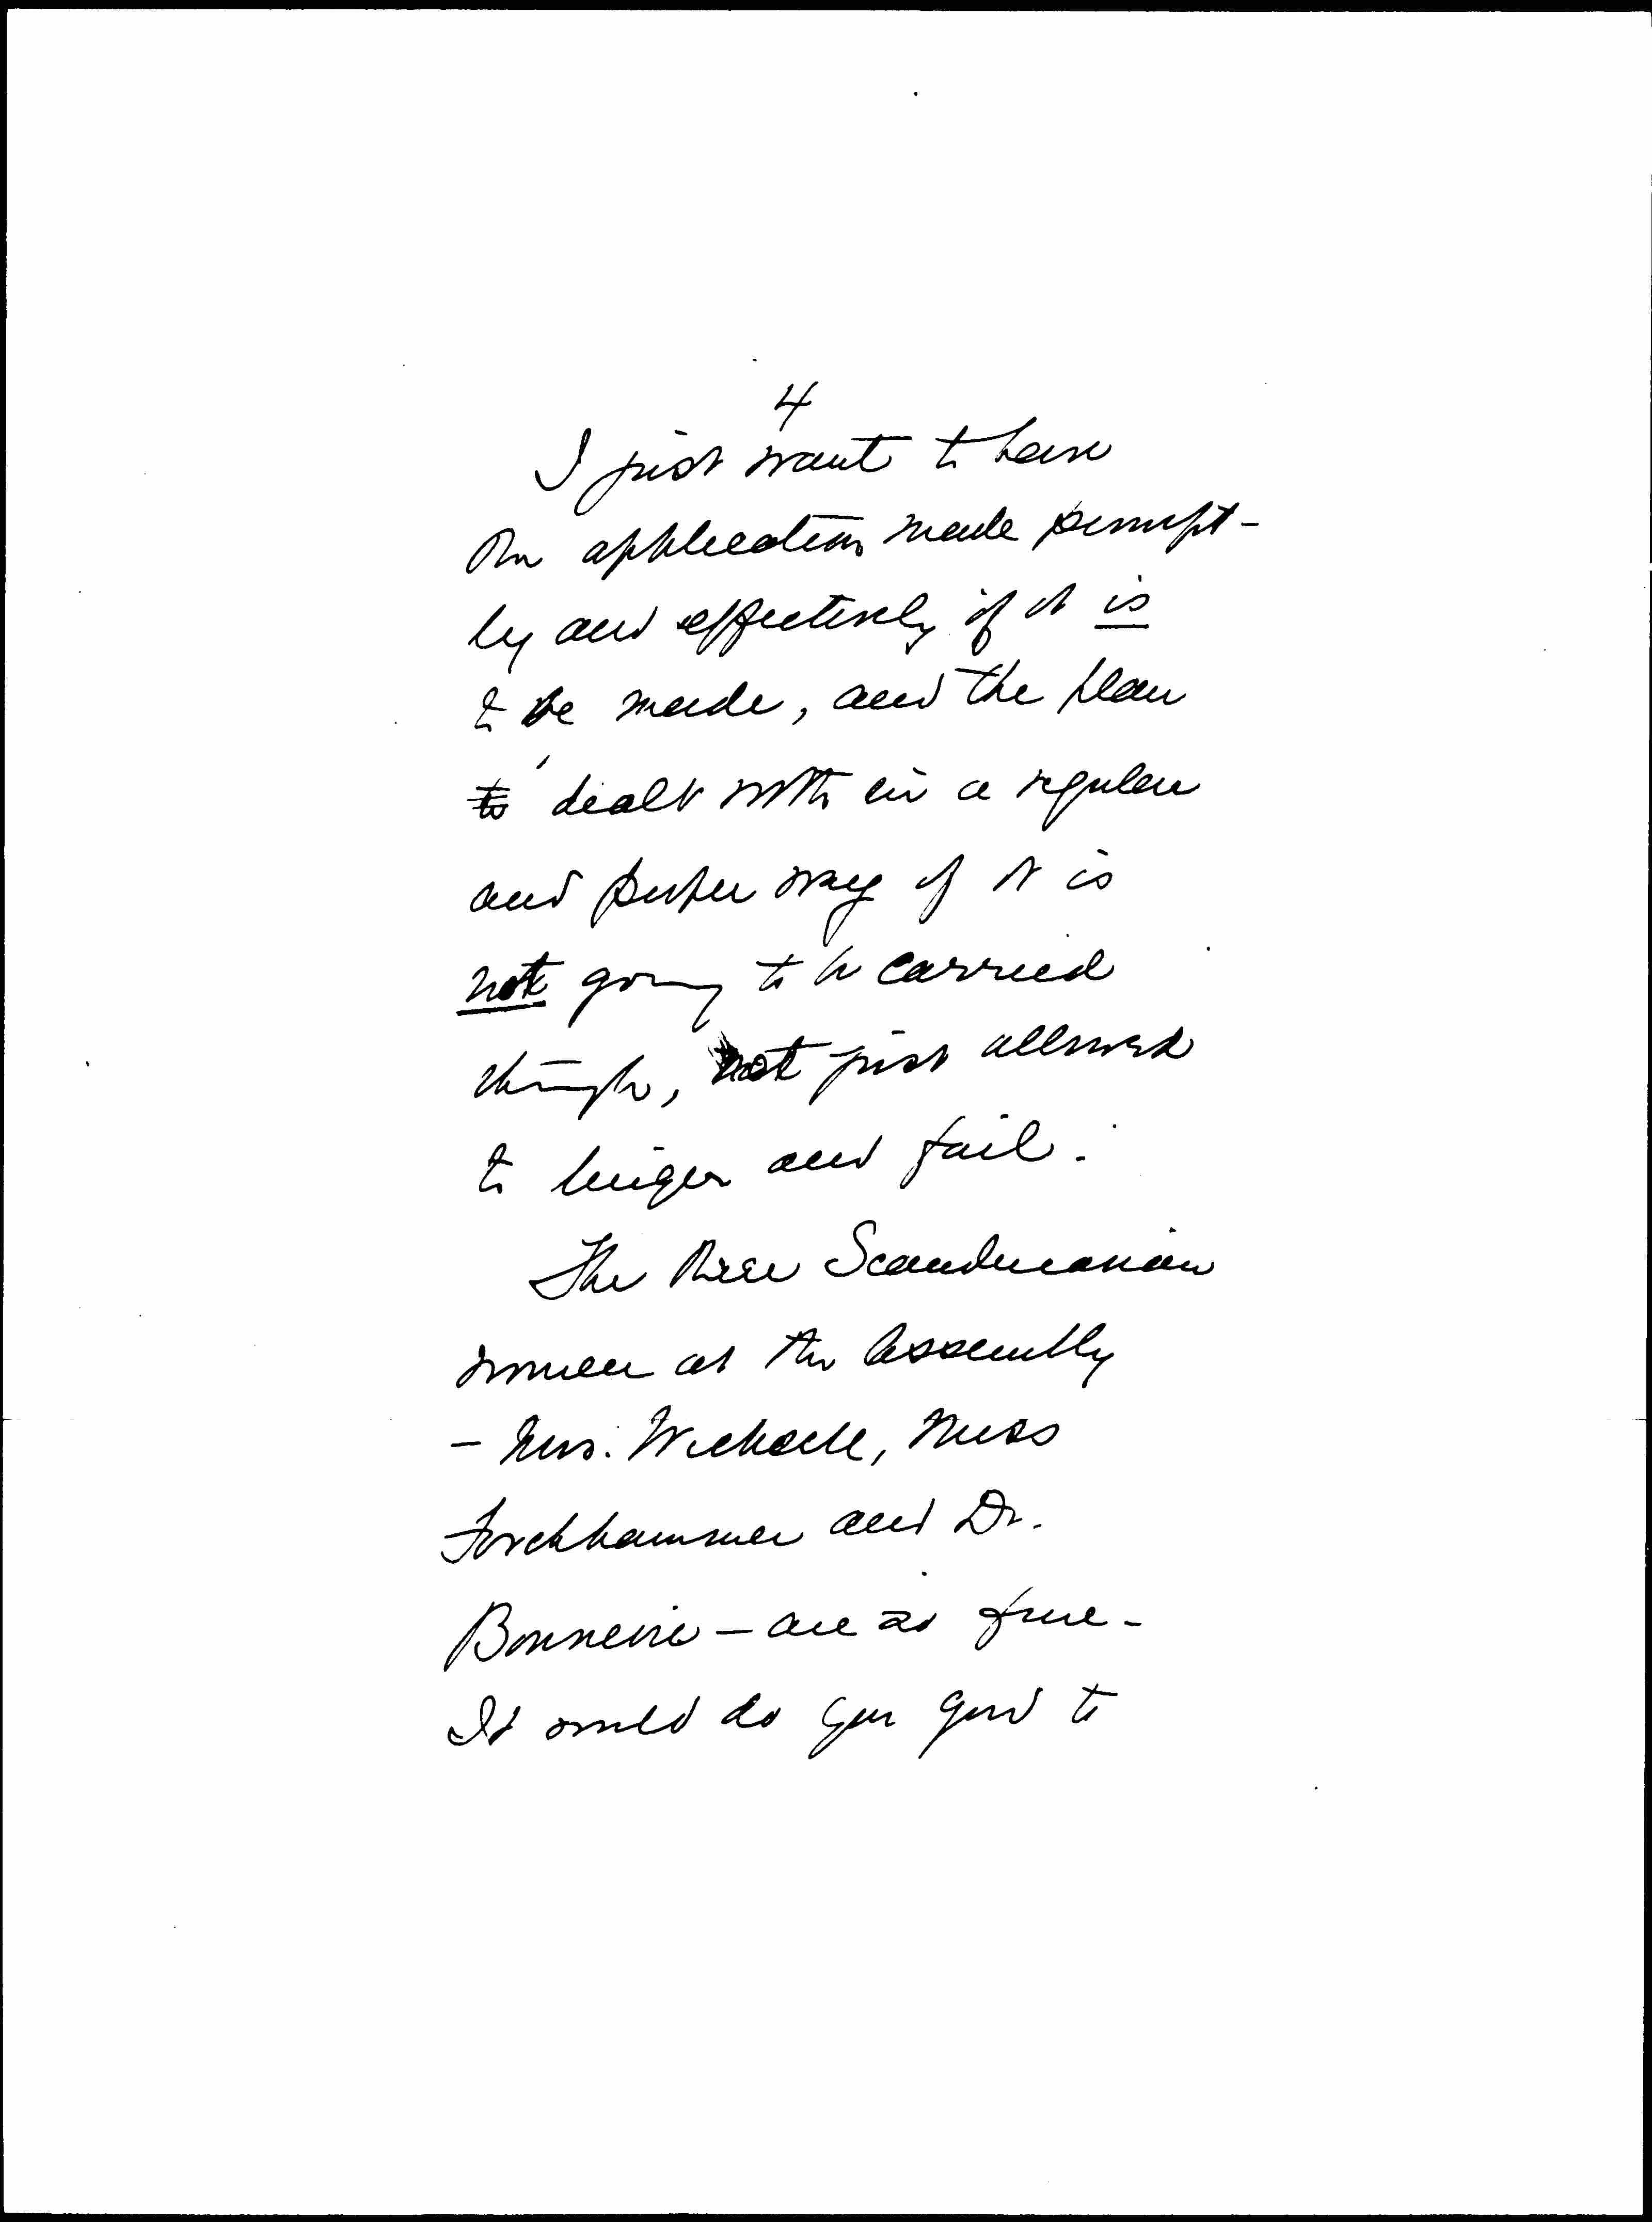 4
I just want to have
the application made prompt-
ly and effectively if it is
to be made, and the plan
to dealt with in a regular
and proper way if it is
not going to be carried
through, not just allowed
to linger and fail.
The three Scandinavian
women at the Assembly
- Mrs. Wicksell, Miss
Forchhammer and Dr.
Bonnevie - are so fine -
It would do you good to